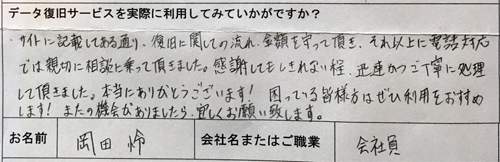 データ復旧サービスを実際に利用してみていかがですか？
・サイトに記載してある通り、復旧に関しての流れ、金額を守って頂き、それ以上に電話対応
では親切に相談に乗って頂きました。感謝してもしきれない程、迅速かつご丁寧に処理
して頂きました。本当にありがとうございます！ 困っている皆様方はぜひ利用をおすすめ
します！またの機会がありましたら、宜しくお願い致します。
お名前 岡田 怜 会社名またはご職業 会社員